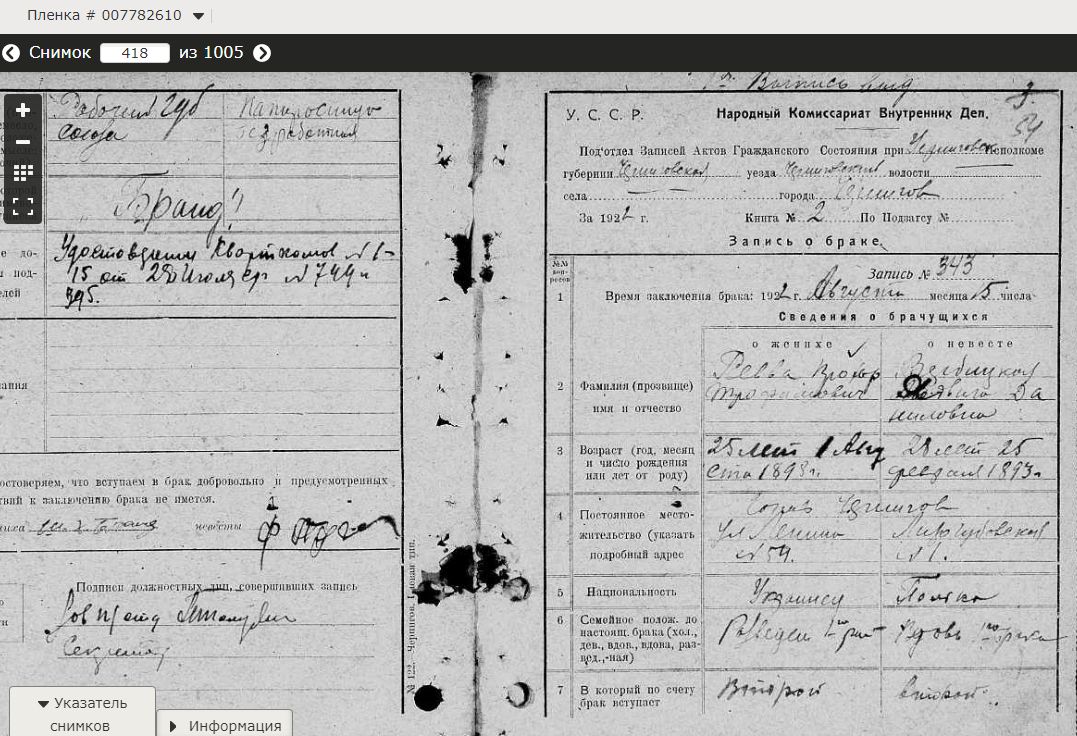 Пленка # 007782610
Снимок 418 из 1005
Рабочий Губ
союза
Папиросницу
безработная
"Бранд"
Удостоверения Квартхомов №1-
15 от 28 Июля ст №744 и
395.
е до-
ы под-
елей
ания
достоверяем, что вступаем в брак добровольно и предусмотренных
твий к заключению брака не имется.
ниха
невесты
Подписи должностных лиц, совершивших запись
Секретарь
№ 122. Чернигов.
1ая Выпись выд
3.
54
У. С. С. Р. Народный Комиссариат Внутренних Дел.
Под'отдел Записей Актов Гражданского Состояния при Черниговск Исполкоме
губернии Черниговской уезда Черниговский волости
села города Чернигов
За 1922 г. Книга № 2 По Подзагсу №
Запись о браке.
№№ воп-росов
Запись № 343
1 Время заключения брака: 1922 г. Августа месяца 15 числа
Сведения о брачущихся
о женихе о невесте
2 Фамилия (прозвище)
имя и отчество
Ревва
Трофимович
Вербицкая
Ядвига Да
ниловна
3 Возраст (год, месяц
и число рождения
или лет от роду)
25 лет 1 Авгу
ста 1893 г.
28 лет 25
февраля 1893 г.
4 Постоянное место-
жительство (указать
подробный адрес
Город Чернигов
Ул Ленина
№ 54.
№ 1.
5 Национальность Украинец Полька
6 Семейное полож. до
настоящ. брака (хол.,
дев., вдов., вдова, раз-
вед.,-ная)
Разведен 1го брак
Вдова 1го брака
7 В который по счету
брак вступает
Второй
второй.
Указатель
снимков
Информация